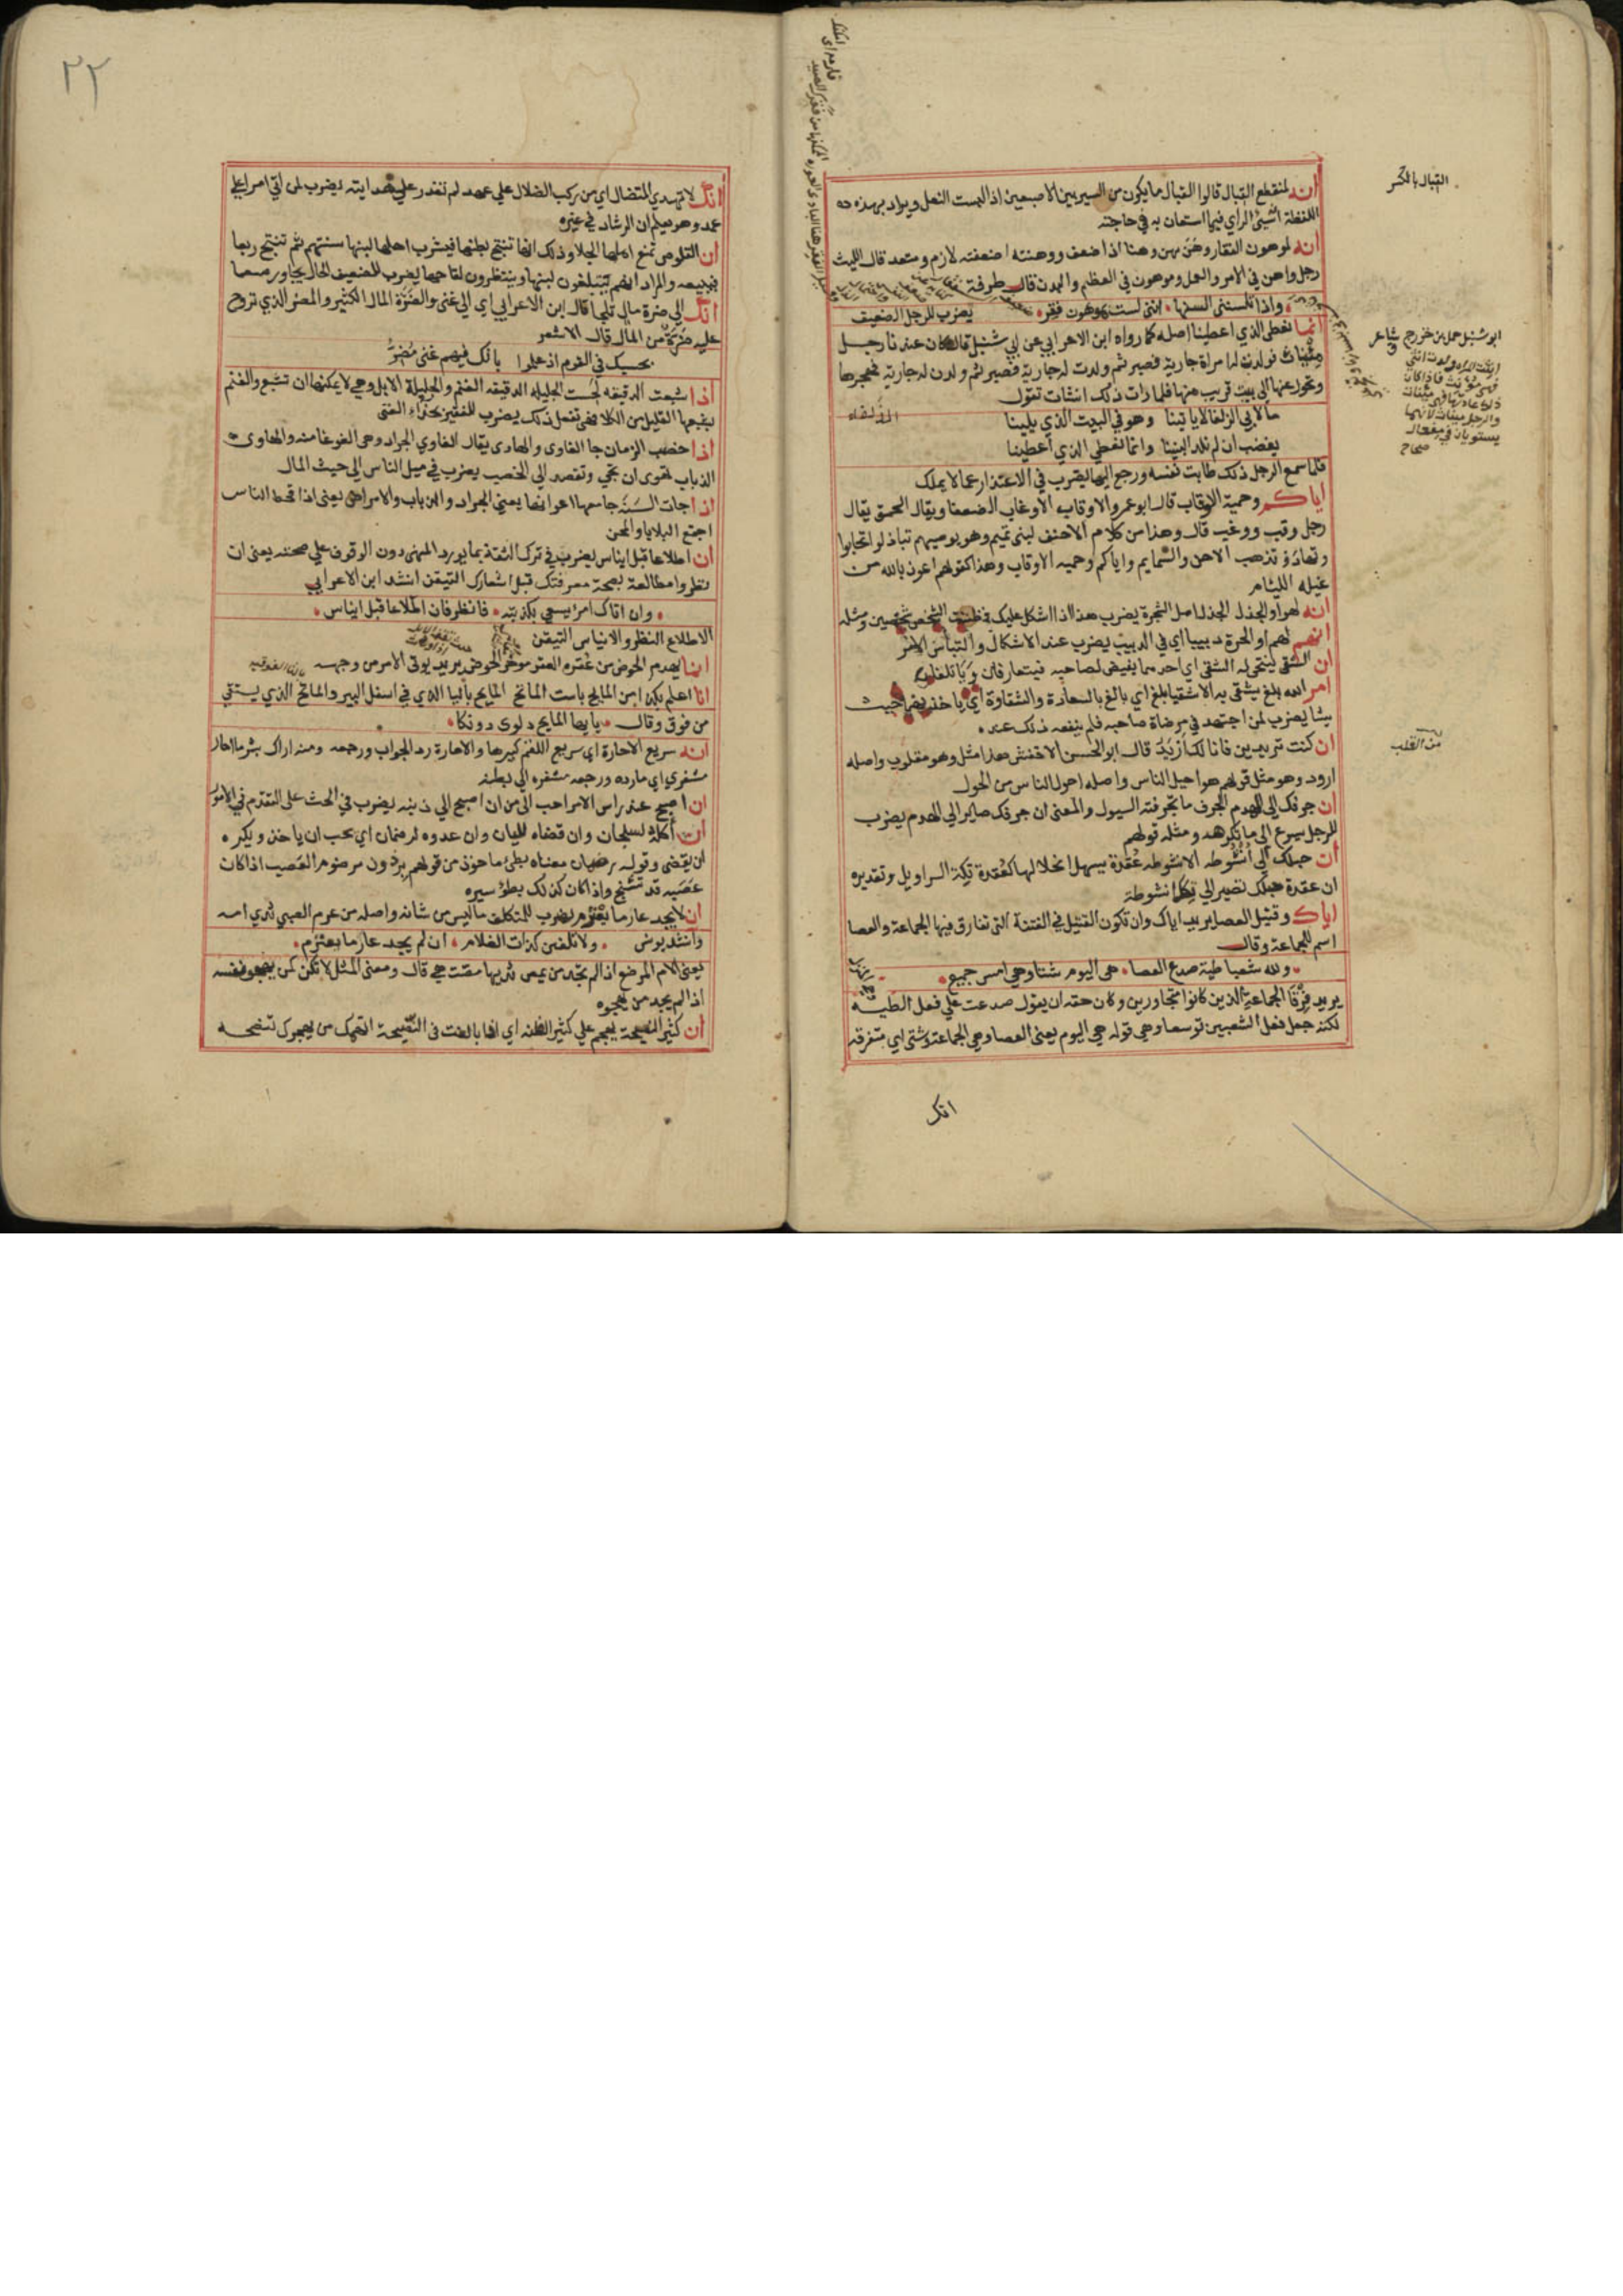 القبال بالكسر
انه لمنقطع القبال قالوا القبال ما يكون من السير بين الاصبعين اذا لبست النعل ويراد بهذه
اللفظة السيئ الراي فيما استعان به في حاجته
انه لموهون الفقار وهن يهن وهنا اذا ضعف ووهنته اضعفته لازم ومتعد قال الليث
رجل واهن في الامر والعمل وموهون في العظم والبدن قال طرفة
واذا تلسنني السنها انني لست بموهون فقر
يضرب للرجل الضعيف
انما نعطى الذي اعطينا اصله كما رواه ابن الاعرابي عن ابي شنبل قال كان عندنا رجل
مئناث فولدت له امراة جارية فصبر ثم ولدت له جارية فصبر ثم ولدت له جارية فهجرها
وتحول عنها الى بيت قريب منها فلما رات ذلك انشات تقول
ما لابي الزلفا لا ياتينا وهو في البيت الذي يلينا
الذلفاء
يغضب ان لم نلد البنينا وانما نعطي الذي اعطينا
فلما سمع الرجل ذلك طابت نفسه ورجع اليها يضرب في الاعتذار عما لا يملك
اياكم وحمية الاوقاب قال ابو عمرو الاوقاب الاوغاب الضعفا ويقال الحمق يقال
رجل وقب ووغب قال وهذا من كلام الاحنف لبني تميم وهو يوصيهم تباذلوا تحابوا
وتهادوا تذهب الاحن والسخايم واياكم وحمية الاوقاب وهذا كقولهم اعوذ بالله من
غيلة الليئام
انه لهو او الجذل الجذل اصل الشجرة يضرب هذا اذا اشكل عليك فظننت الشخص شخصين ومثله
انهم لهم او الحرة دبيبا اي في الدبيب يضرب عند الاشكال والتباس الامر
ان الشقي ينتحى له الشقي اي احدهما يقيض لصاحبه فيتعارفان وياتلفان
امر الله بلغ يشقى به الاشقيا بلغ اي بالغ بالسعادة والشقاوة اي ياخذهما حيث
يشا يضرب لمن اجتهد في مرضاة صاحبه فلم ينفعه ذلك عنده
ان كنت تريدين فانا لك اريد قال ابو الحسن الاخفش هذا مثل وهو مقلوب واصله
من القلب
ارود وهو مثل قولهم هو احيل الناس واصله احول الناس من الحول
ان جرفك الى الهدم الجرف ما تجرفته السيول والمعنى ان جرفك صاير الى الهدم يضرب
للرجل يسرع الى ما يكرهه ومثله قولهم
ان حبلك الى انشوطه الانشوطه عقدة يسهل انحلالها كعقدة تكة السراويل وتقديره
ان عقدة حبلك تصير الى انشوطة
اياك وقتيل العصا يريد اياك وان تكون القتيل في الفتنة التي تفارق فيها الجماعة والعصا
اسم للجماعة وقال
ولله شعبا طية صدع العصا هي اليوم شتا وهي امس جميع
يريد فرقا الجماعة الذين كانوا متجاورين وكان حقه ان يقول صدعت علي فعل الطية
لكنه جعل فعل الشعبين توسعا وهي قوله هي اليوم يعنى العصا وهي الجماعة وشتى اي متفرقه
انك
٢٢
انك لا تهدي المتضال اي من ركب الضلال علي عمد لم تقدر علي هدايته يضرب لمن اتي امرا علي
عمد وهو يعلم ان الرشاد في غيره
ان القلوص تمنع اهلها الجلا وذلك انها تنتج بطنها فيشرب اهلها لبنها سنتهم ثم تنتج ربعا
فيبيعه والمراد انهم يتبلغون لبنها وينتظرون لقاحها يضرب للضعيف الحال يجاور منعما
انك الى ضرة مال تلجا قال ابن الاعرابي اي الى غنى والضرة المال الكثير والمضر الذي تروح
عليه ضرة من المال قال الاشعر
بحسبك في القوم اذ علموا بانك فيهم غنى مضر
اذا شبعت الدقيقه لحست الجليله الدقيقه الغنم والجليلة الابل وهي لا يمكنها ان تشبع والغنم
يشبعها القليل من الكلا فهي تفعل ذلك يضرب للفقير يخدم الغنى
اذا اخصب الزمان جا الغاوى والهاوى يقال الغاوي الجراد وهي الغوغا منه والهاوى
الذباب تهوى ان تجي وتقصد الى الخصب يضرب في ميل الناس الى حيث المال
اذا جات السنة جا معها اعوانها يعني الجراد والذباب والامراض يعنى اذا قحط الناس
اجتمع البلايا والمحن
ان اطلاعا قبل ايناس يضرب في ترك الثقة بما يورد المنهى دون الوقوف علي صحته يعنى ان
نظرا ومطالعة بصحة معرفتك قبل اشعارك التيقن انشد ابن الاعرابي
وان اتاك امرا يسعى بكذبته فانظر فان اطلاعا قبل ايناس
الاطلاع النظر والايناس التيقن
انما يهدم الحوض من عقره العقر موخر الحوض يريد يوتى الامر من وجهه
انا اعلم بكذا من المايح باست الماتح المايح باليا الذي في اسفل البير والماتح الذي يستقي
من فوق وقال يا ايها المايح دلوى دونكا
انه سريع الاحارة اي سريع اللقم كبيرها والاحارة رد الجواب ورجعه ومنه اراك بشر ما احار
مشفري اي ما رده ورجعه مشفره الى بطنه
ان اصبح عند راس الامر احب الى من ان اصبح الي ذنبه يضرب في الحث على التقدم في الامور
ان اكله لسلجان وان قضاه لليان وان عدوه لرضمان اي يحب ان ياخذ ويكره
ان يقضى وقوله رضمان معناه بطئ ماخوذ من قولهم برذون مرضوم العصب اذا كان
عصبه قد تشنج واذا كان كذلك بطؤ سيره
ان لا يجد عارما يعترم يضرب للمتكلف ما ليس من شانه واصله من عرم الصبي ثدي امه
وانشد يونس ولا تلفين كذات الغلام ان لم يجد عارما يعترم
يعنى الام المرضع اذ لم تجد من يمص ثديها مصته هي قال ومعنى المثل لا تكن كمن يهجو نفسه
اذا لم يجد من يهجوه
ان كثير النصيحة يهجم علي كثير الظنه اي اذا بالغت في النصيحة اتهمك من يهجوك تنصحه